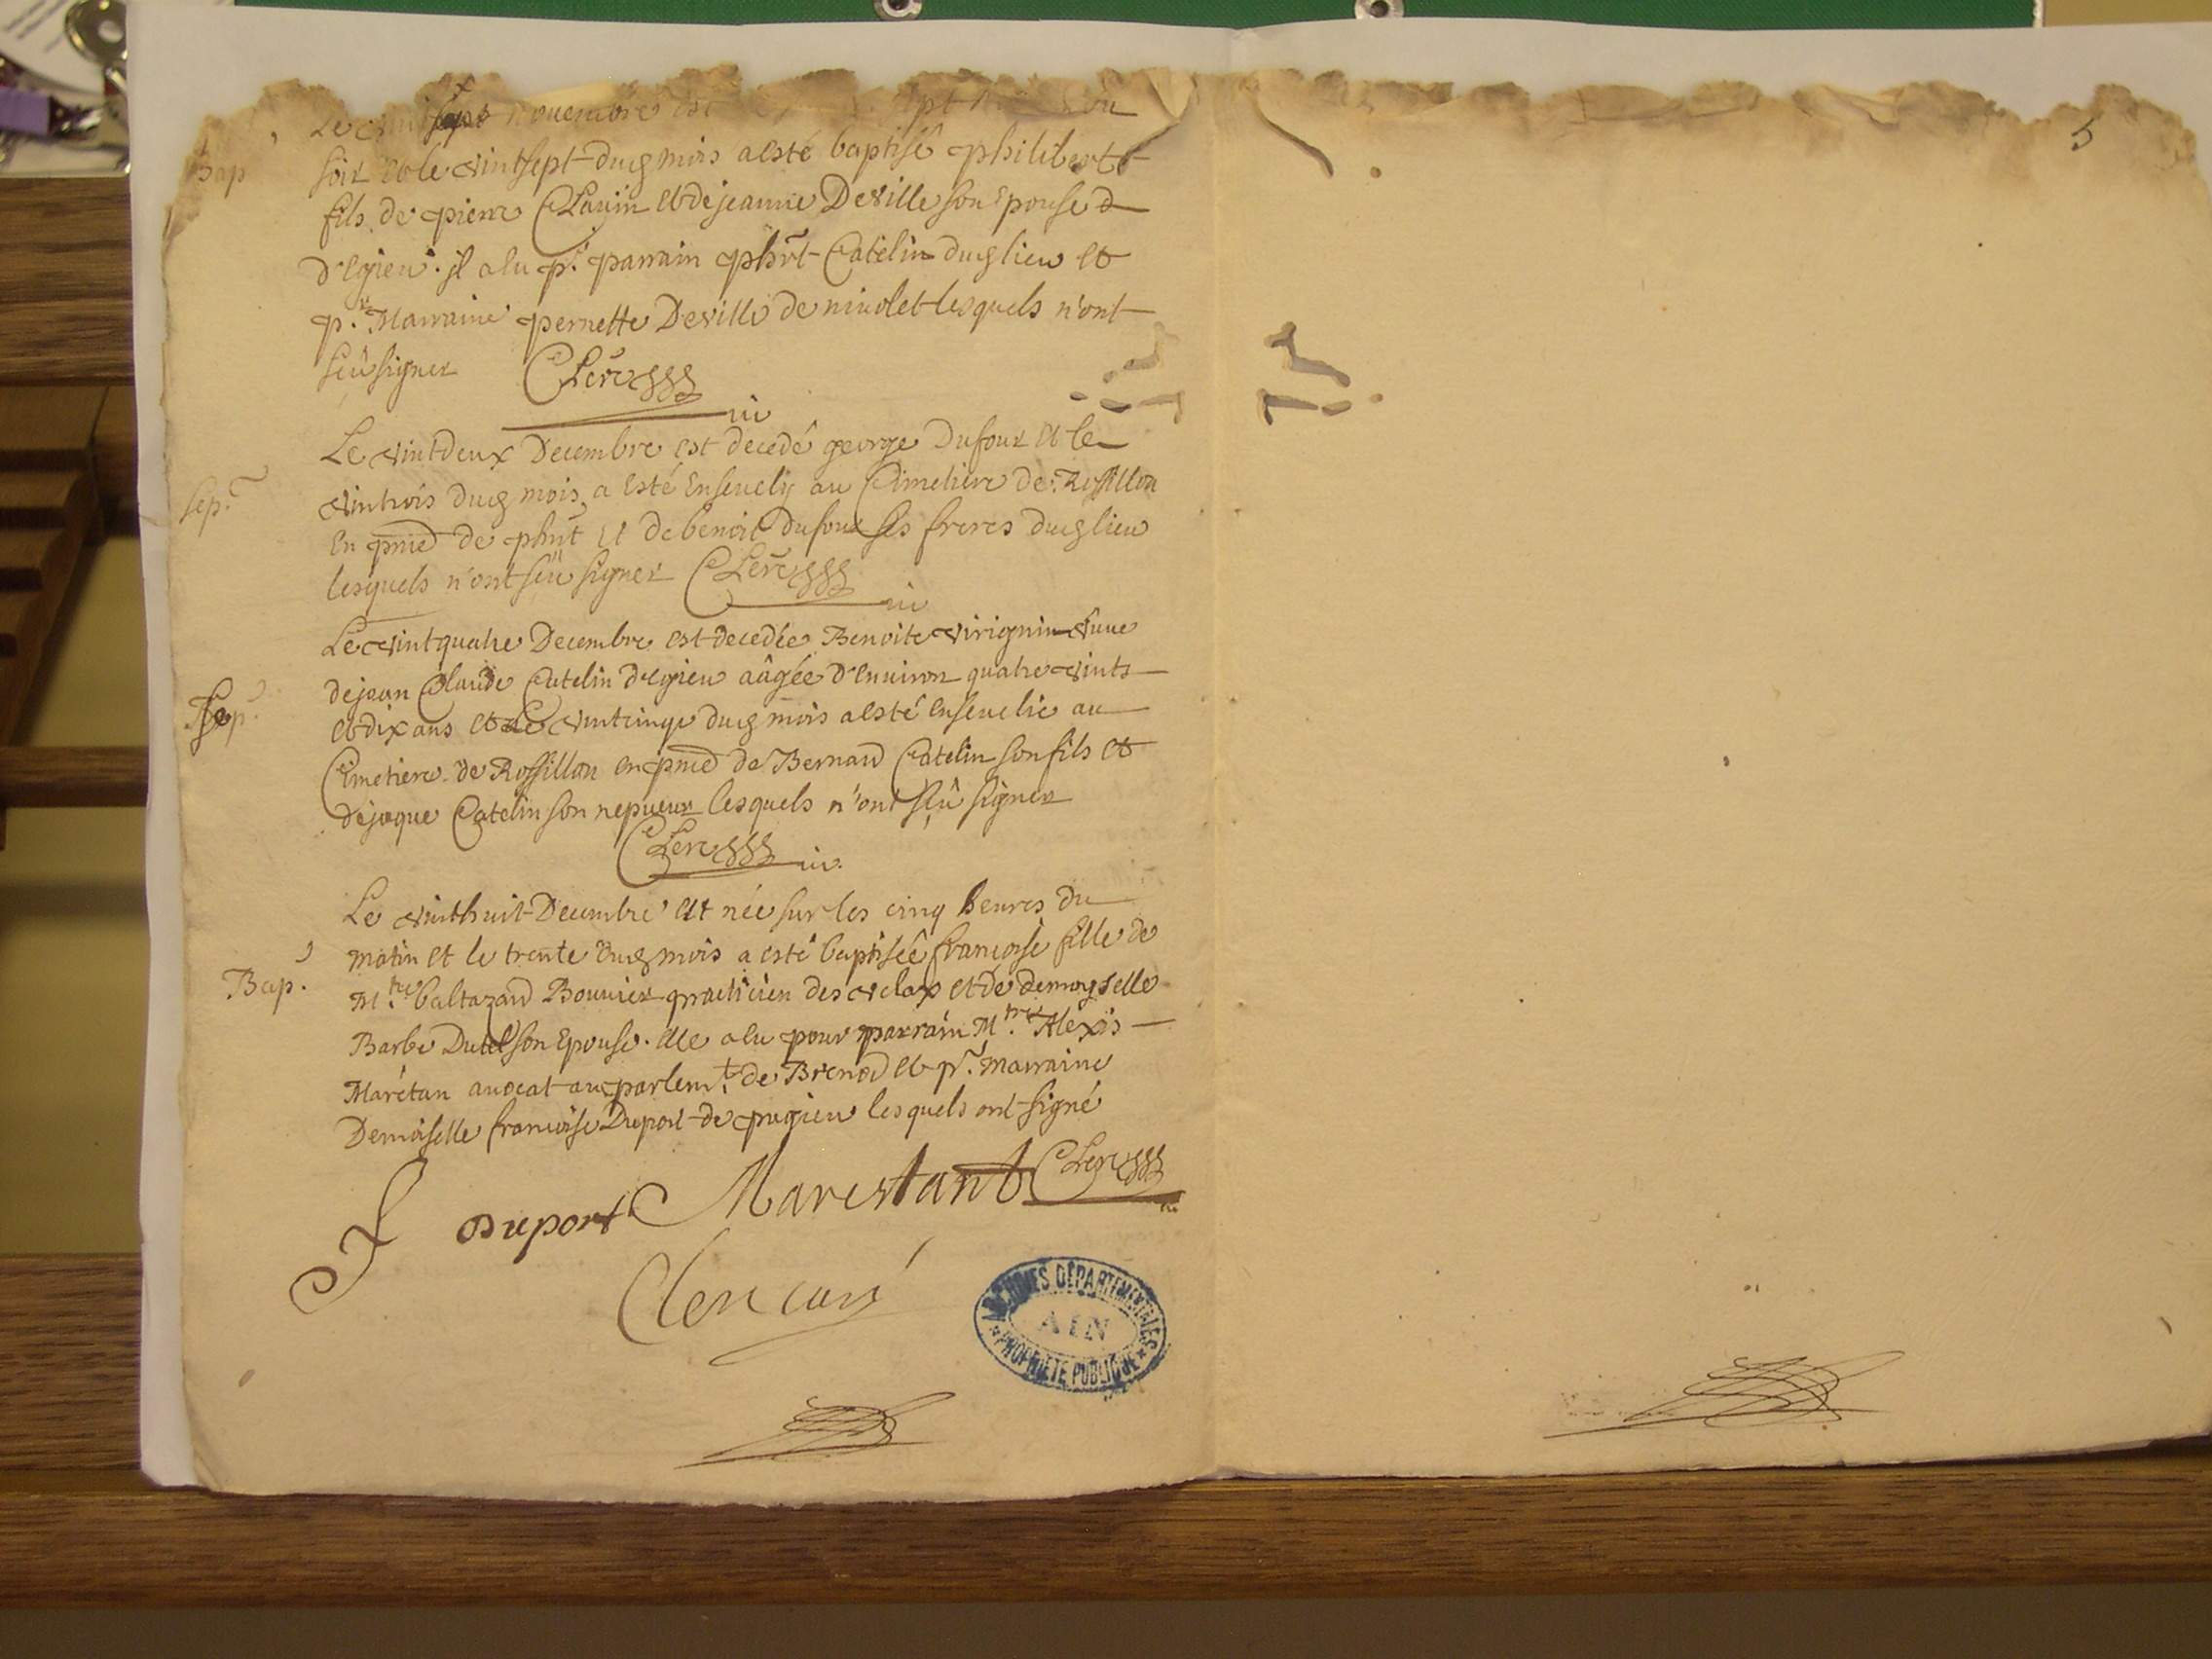 5
Le vint sept novembre est
Bap
soir et le vintsept dud mois a esté baptisé philibert
fils de pierre Clauin et de jeanne Deville son Epouse d
d'Egieu. jl a eu pr. parrain phrt Catelin dud lieu et
pr. Marraine pernette Deville de nivolet lesquels n'ont
seû signer Clerc
Le vintdeux Decembre est decedé george Dufour et le
Sep.re
vintrois dud mois a esté Ensevely au Cimetiere de Rossillon
En pnce de phrt Et de benoit Dufour ses freres dud lieu
lesquels n'ont seû signer Clerc
Le vintquatre Decembre est decedée Benoite virignin vuve
Sep.
de jean Claude Catelin d'Egieu aâgée d'Environ quatre vints
et dix ans et le vintcinqe dud mois a esté Ensevelie au
Cimetiere de Rossillon en pnce de Bernard Catelin son fils et
de jaque Catelin son nepveur lesquels n'ont sçû signer
Clerc
Le vinthuit Decembre est née sur les cinq heures du
matin et le trente dud mois a esté baptisée francoise fille de
Bap.
M.tre baltazard Bouvier practicien des velax et de demoyselle
Barbe Dutel son Epouse. elle a eu pour parrain M.tre Alexis
Marétan avocat au parlem.t de Brenod et pr. marraine
Demoiselle francoise Duport de pugieu lesquels ont signé
f Duport Marestant Clerc
Clerc curé
ARCHIVES DÉPARTEMENTALES
AIN
PROPRIETE PUBLIQUE